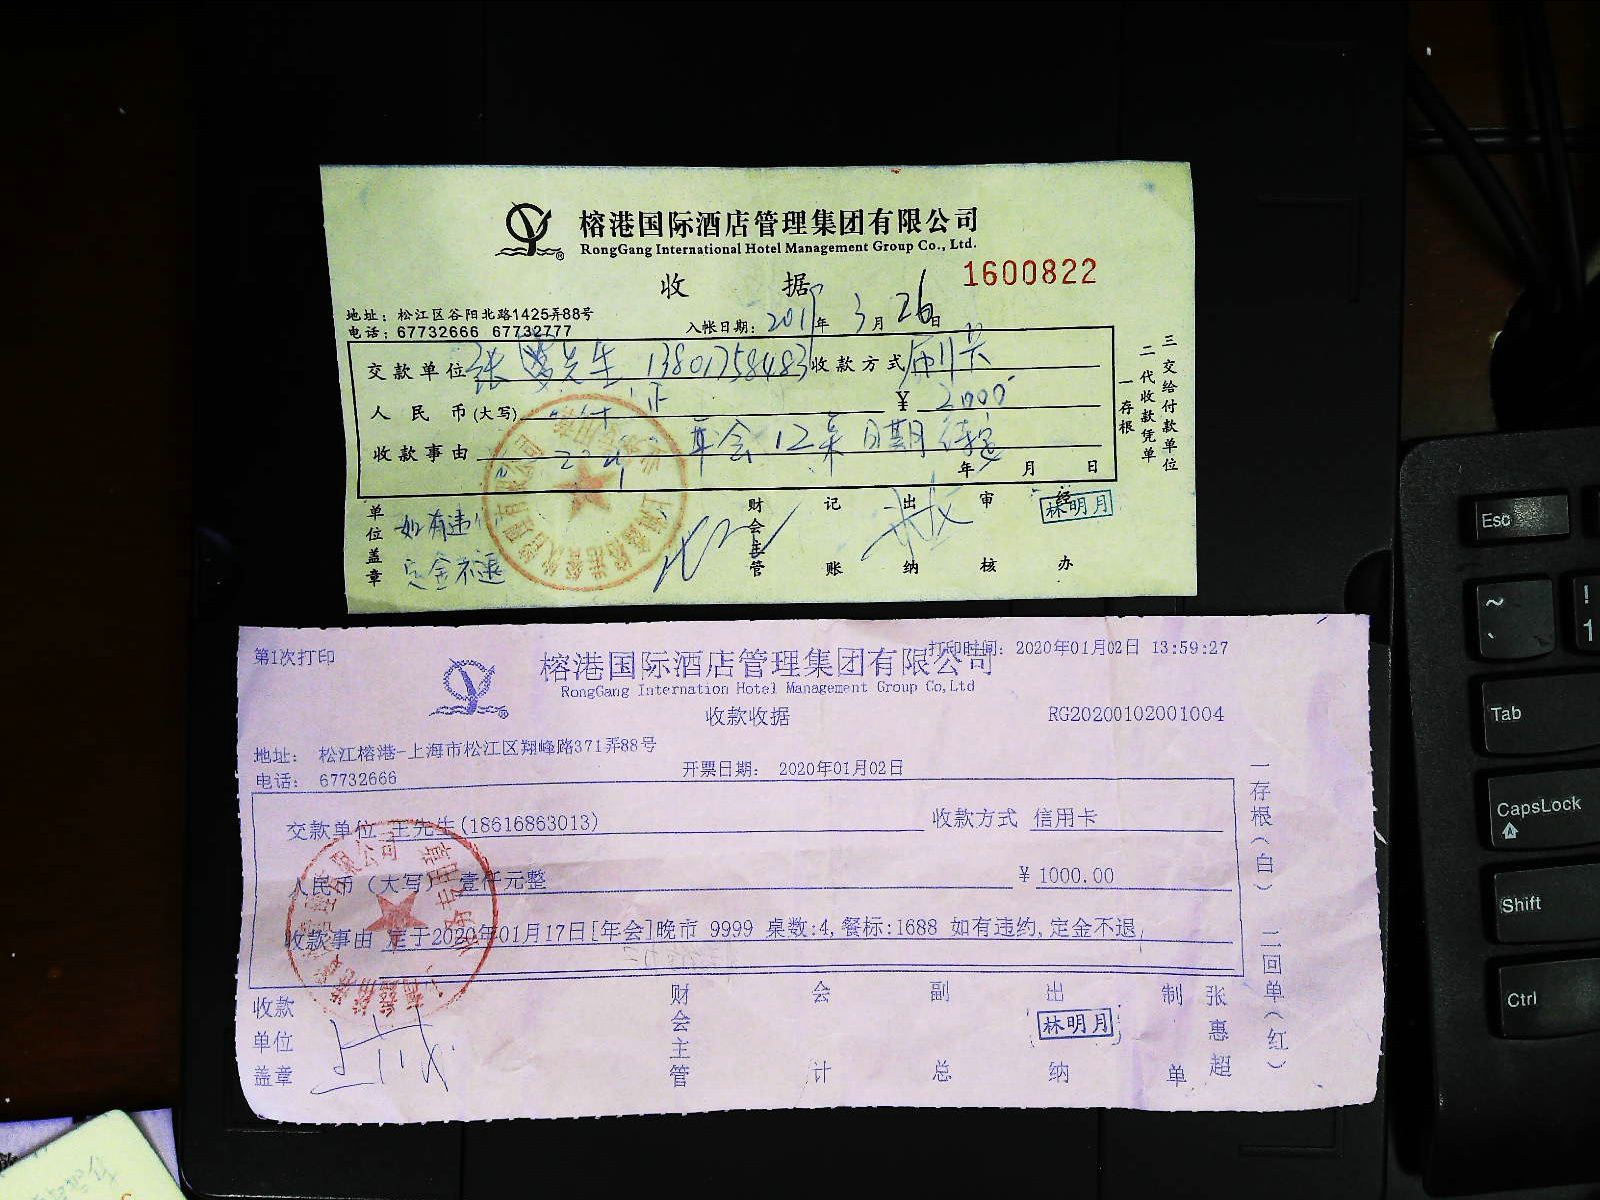 榕港国际酒店管理集团有限公司
RongGang International Hotel Management Group Co., Ltd.
收 据
1600822
地址：松江区谷阳北路1425弄88号
电话：67732666 67732777
入帐日期：2019年3月26日
交款单位 张 先生 13801758483 收款方式 刷卡
人民币(大写) 仟 正 ￥2000
收款事由 2020 年会12桌 日期待定
年 月 日
一存根
二代收款凭单
三交给付款单位
单位盖章 如有违约
定金不退
财会主管 记账 出纳 审核 经办
林明月
第1次打印
打印时间：2020年01月02日 13:59:27
榕港国际酒店管理集团有限公司
RongGang Internation Hotel Management Group Co,Ltd
收款收据
RG20200102001004
地址： 松江榕港-上海市松江区翔峰路371弄88号
电话： 67732666
开票日期： 2020年01月02日
交款单位 王先生(18616863013) 收款方式 信用卡
人民币（大写） 壹仟元整 ￥1000.00
收款事由 定于2020年01月17日[年会]晚市 9999 桌数:4,餐标:1688 如有违约,定金不退,
一存根（白） 二回单（红）
收款单位盖章 财会主管 会计 副总 出纳 制单 张惠超
林明月
Esc
~
`
!
1
Tab
CapsLock
Shift
Ctrl